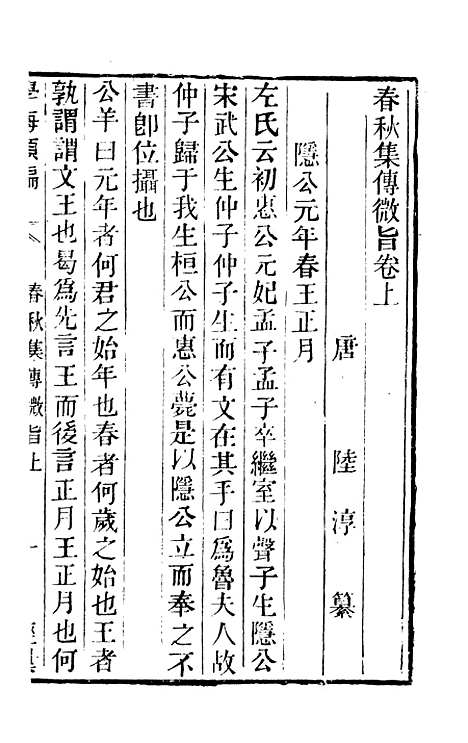 春秋集傳微旨卷上
唐 陸淳纂
隱公元年春王正月
左氏云初惠公元妃孟子孟子卒繼室以聲子生隱公
宋武公生仲子仲子生而有文在其手曰爲魯夫人故
仲子歸于我生桓公而惠公薨是以隱公立而奉之不
書卽位攝也
公羊曰元年者何君之始年也春者何歲之始也王者
孰謂謂文王也曷爲先言王而後言正月王正月也何
學海類編 春秋集傳微旨上 一